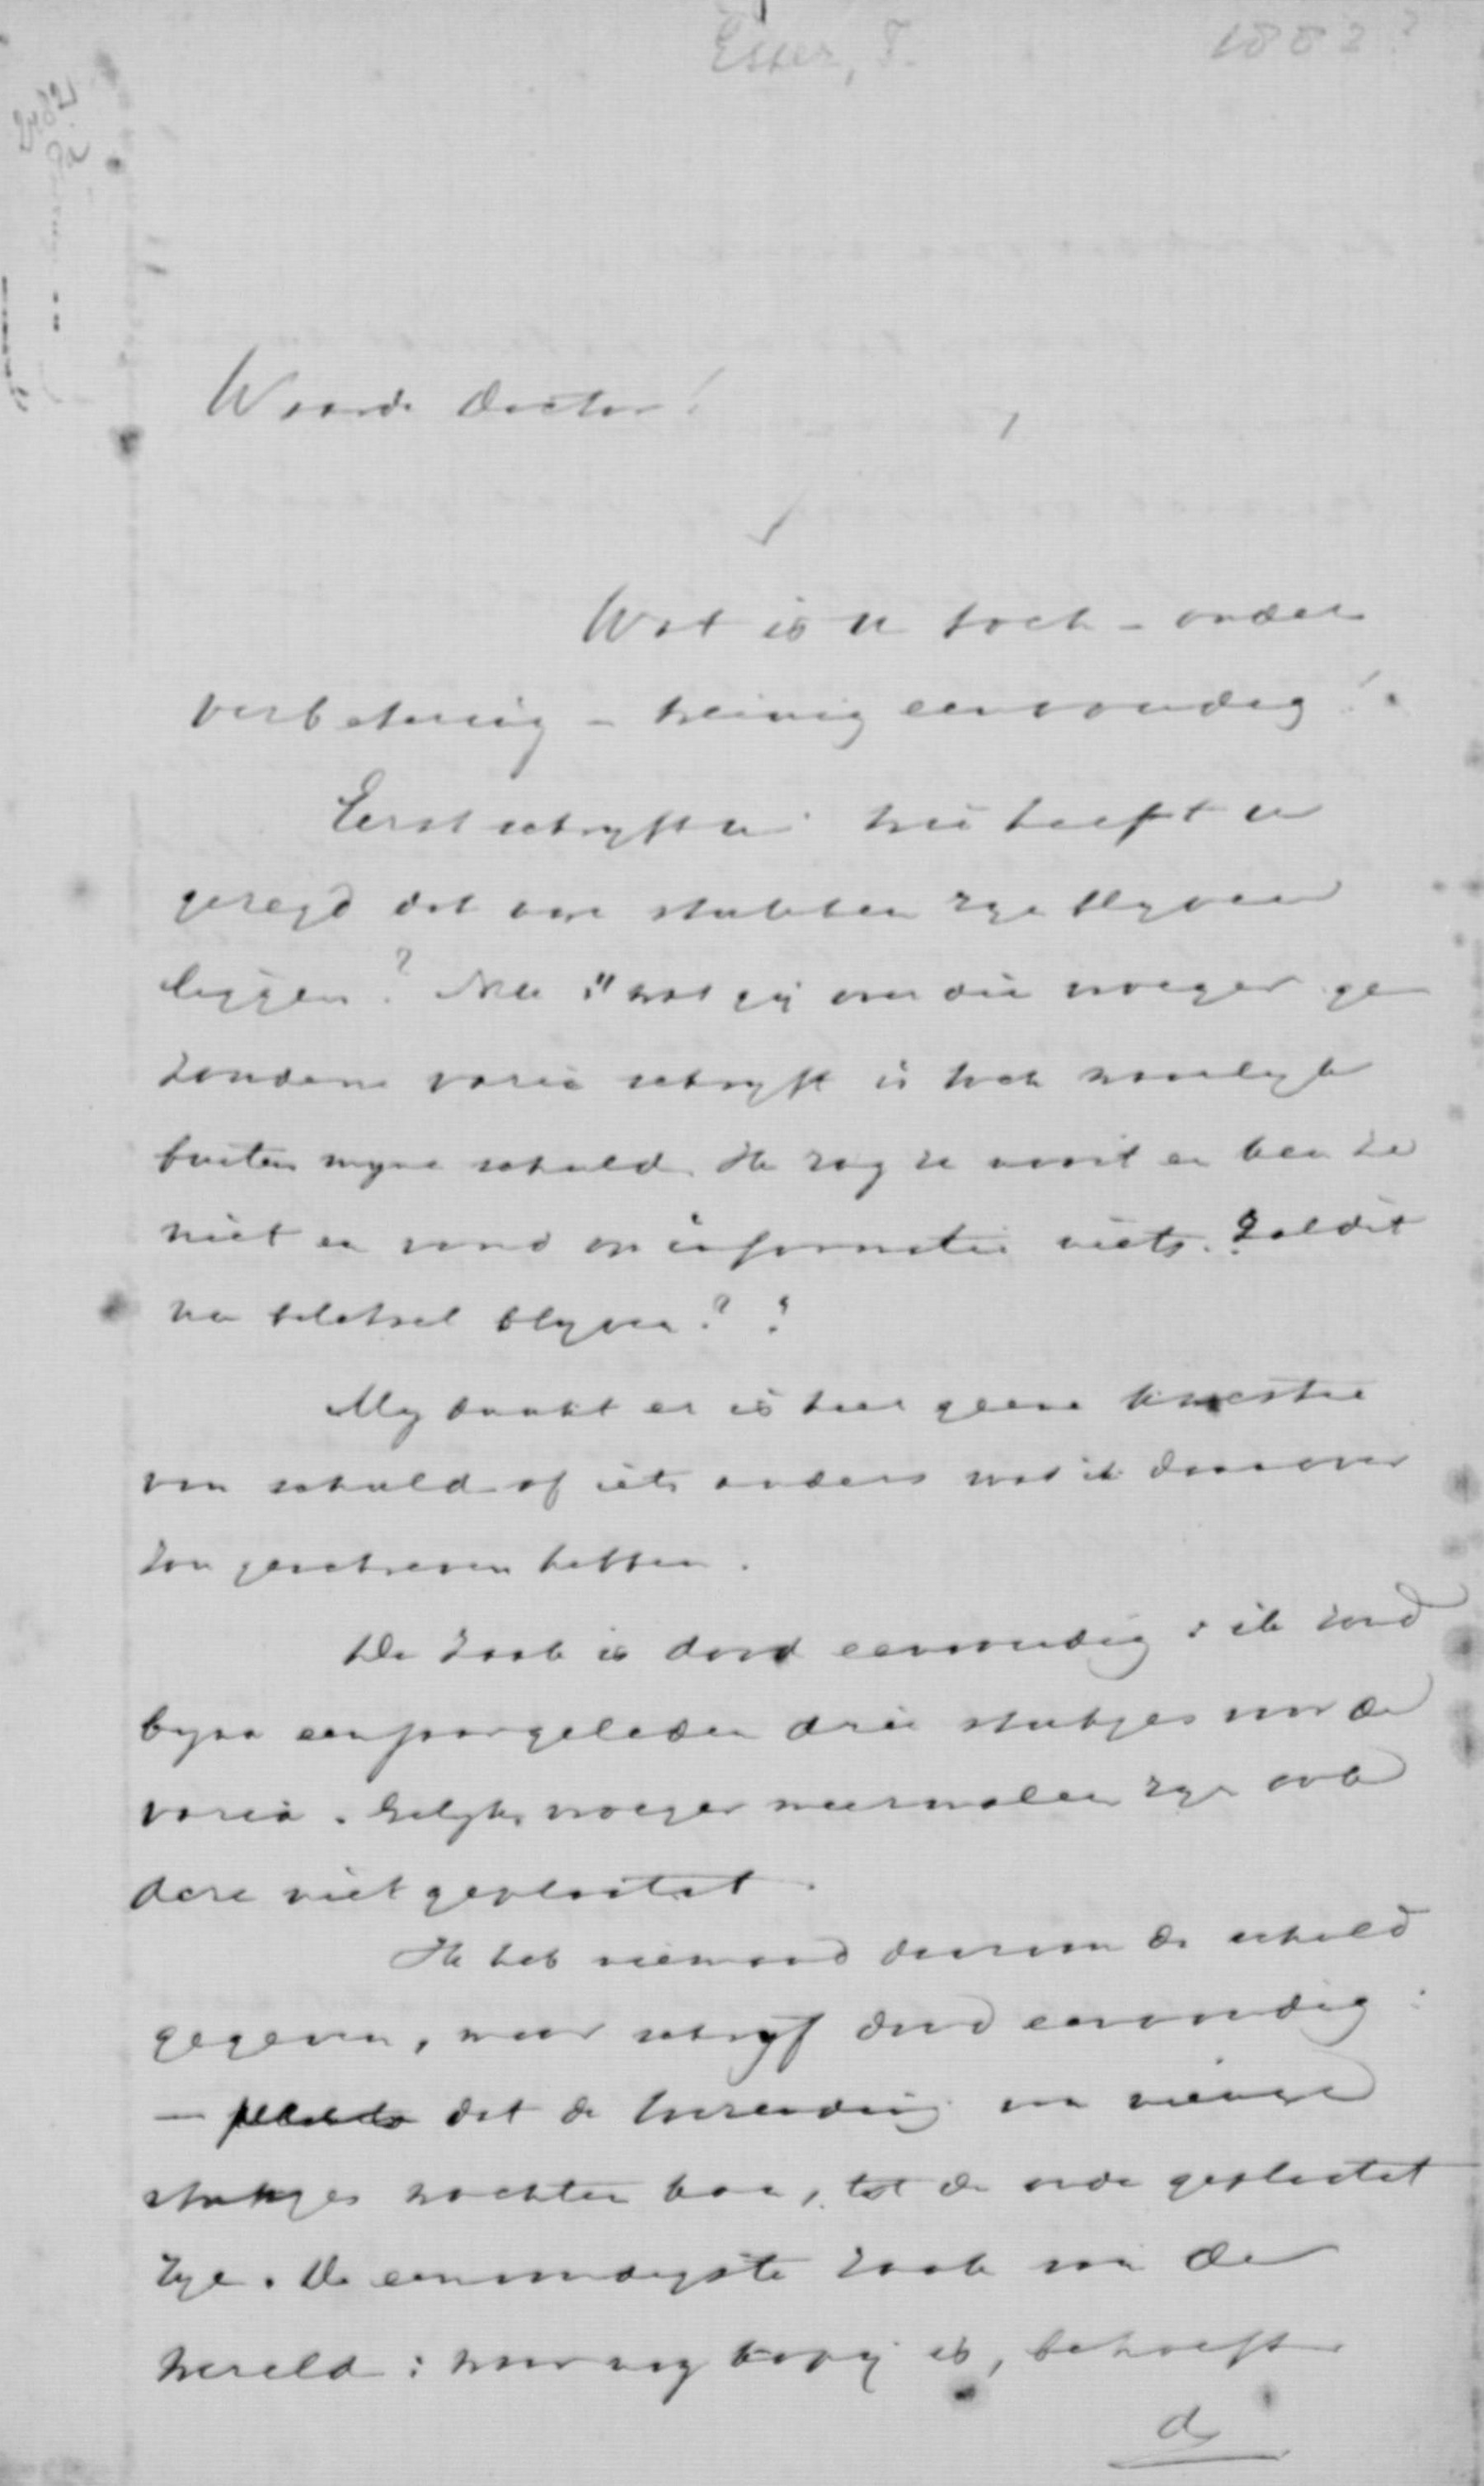 Esser, I. 1882?
Waarde doctor!
Wat is U toch - onder
verbetering - weinig eenvoudig!
Eerst schryft U: wie heeft U
gezegd dat uwe stukken zyn blyven
liggen? Nu: "wat gij over die vroeger ge
zondene varia schryft is toch waarlyk
buiten myne schuld. Ik zag ze nooit en ken ze
niet en vond op informatie niets. Zal dit
een beletsel blyven?"?
My dunkt er is hier geene kwestie
van schuld of iets anders wat ik daarover
zou geschreven hebben.
De zaak is dood eenvoudig: ik zond
byna een jaar geleden drie stukjes voor de
varia. Gelyk vroeger meermalen zyn ook
deze niet geplaatst.
Ik heb niemand daarvan de schuld
gegeven, maar schryf dood eenvoudig:
- dat de toezending van nieuwe
stukjes wachten kan, tot de oude geplaatst
zyn. De eenvoudigste zaak van de
wereld: waar nog kopij is, behoeft